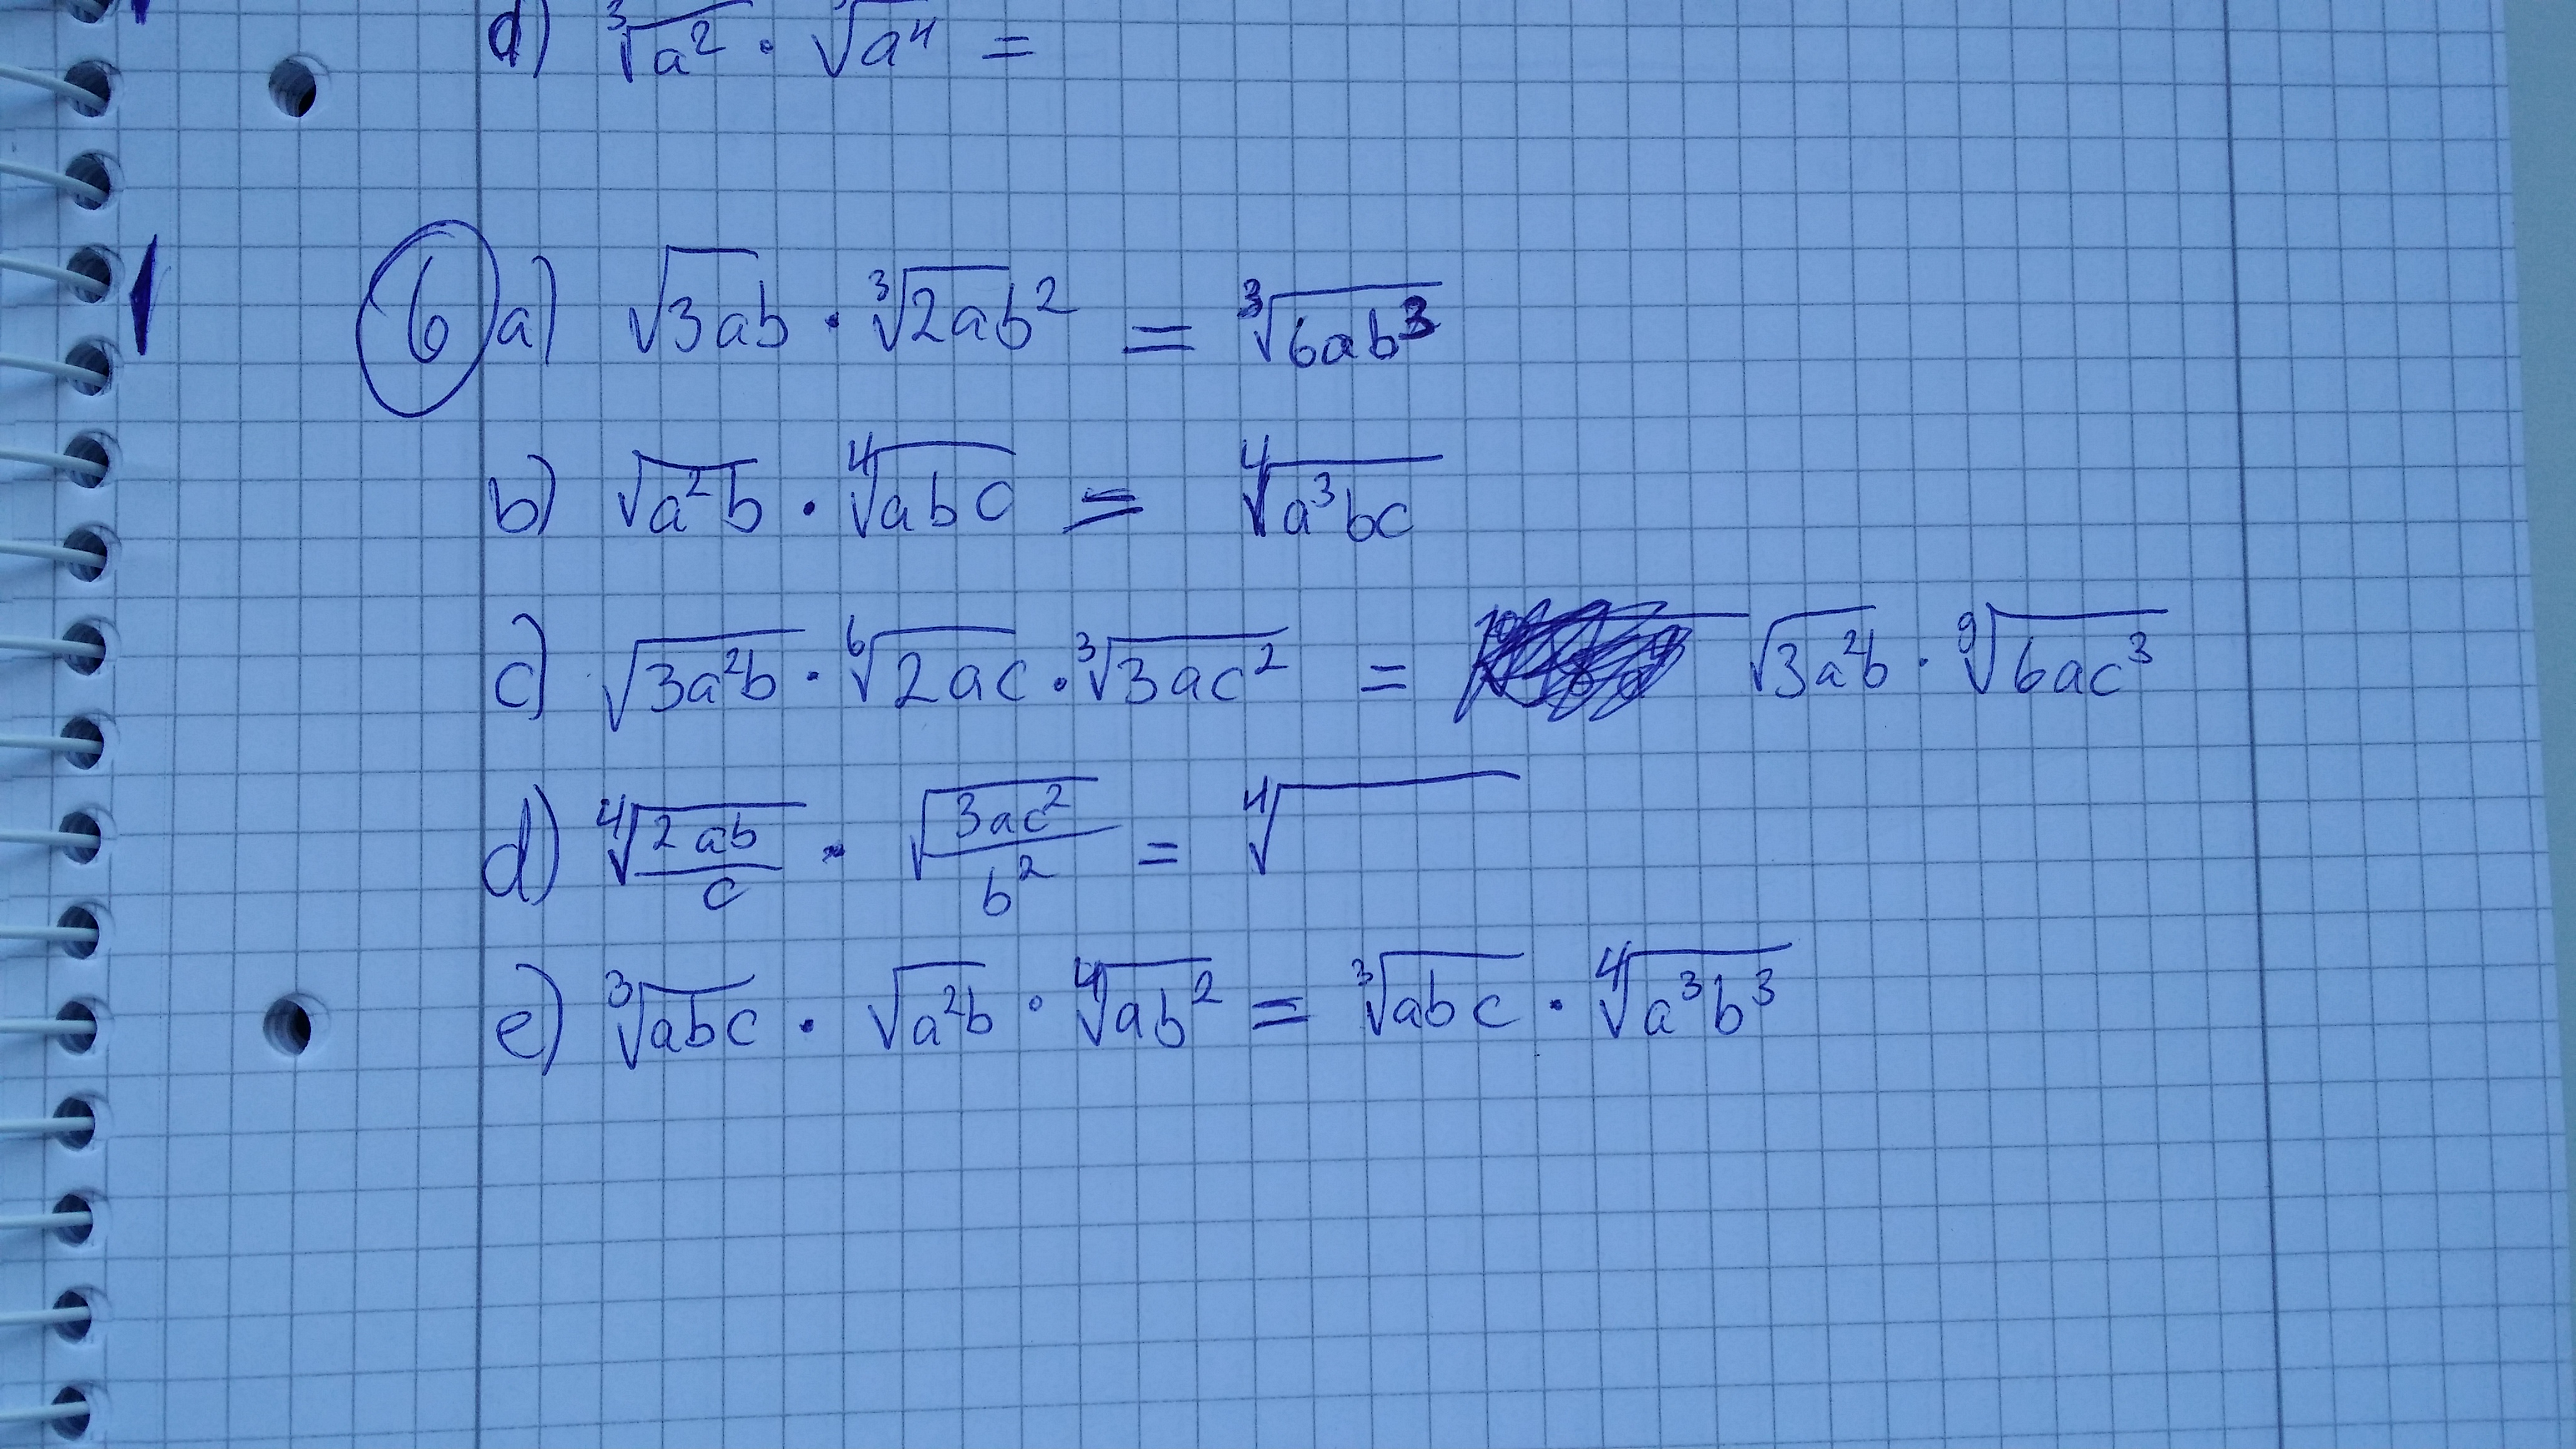 d) ∛a² · √a⁴ =
6 a) √3ab · ∛2ab² = ∛6ab³
b) √a²b · ∜abc = ∜a³bc
c) √3a²b · ⁶√2ac · ∛3ac² = √3a²b · ⁹√6ac³
d) ∜2ab/c · √3ac²/b² = ∜
e) ∛abc · √a²b · ∜ab² = ∛abc · ∜a³b³